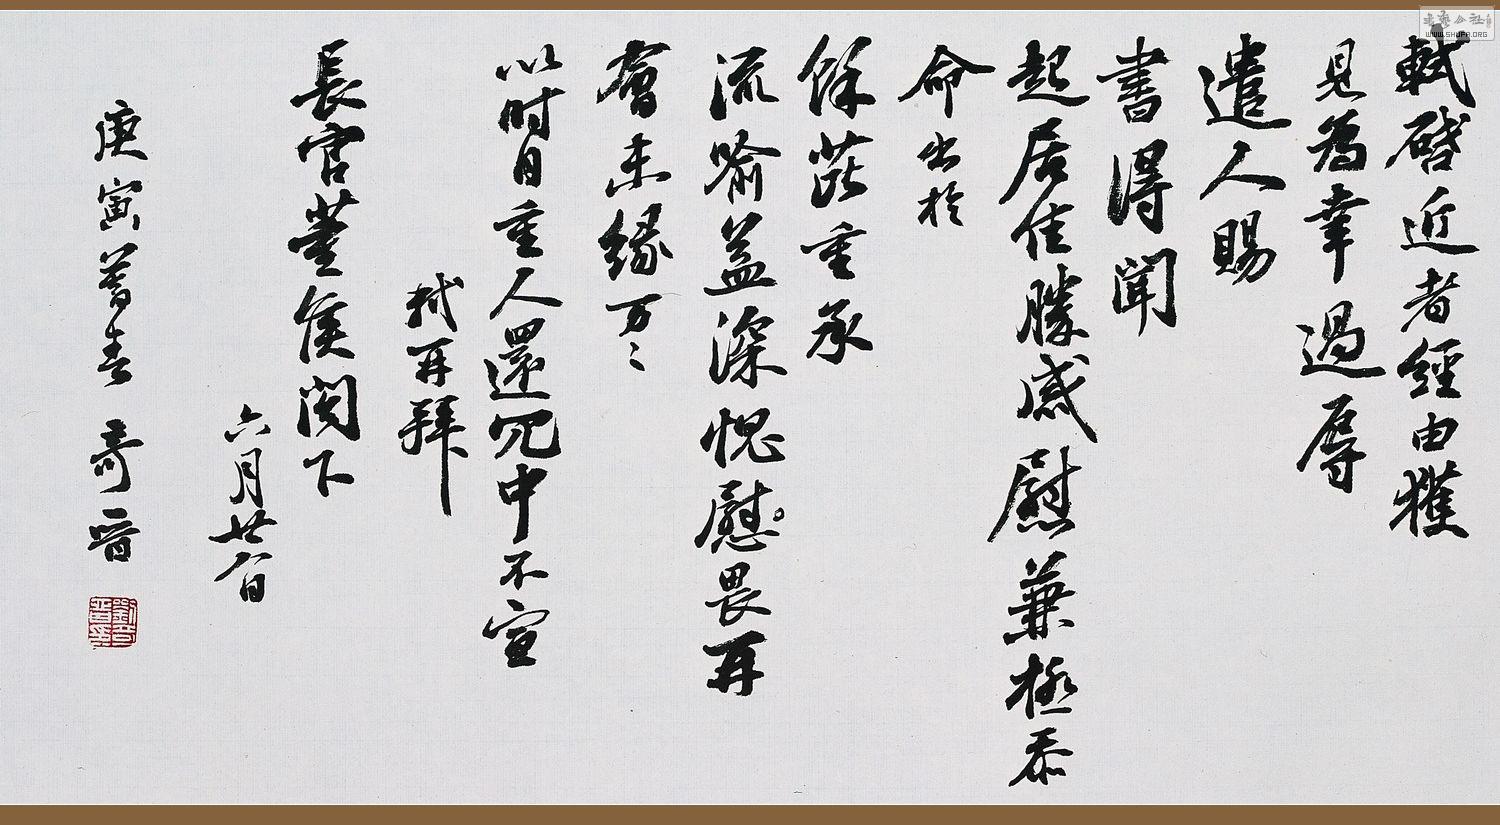 軾啓近者經由獲
見為幸過辱
遣人賜
書得聞
起居佳勝感慰兼極忝
命出於
餘芘重承
流喻益深愧慰畏再
會未緣万〻
以时自重人還冗中不宣
軾再拜
長官董侯閣下
六月廿八日
庚寅暮春 奇晉
书艺公社
WWW.SHUFA.ORG